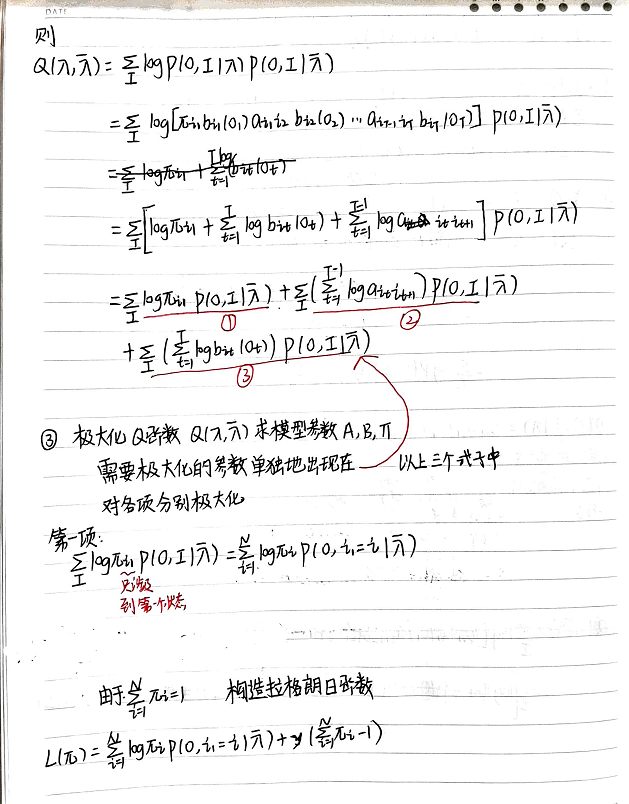 DATE
则
Q(λ,λ̄) = Σ_I log P(O,I|λ) P(O,I|λ̄)
= Σ_I log[π_{i1} b_{i1}(O_1) a_{i1 i2} b_{i2}(O_2) … a_{iT-1 iT} b_{iT}(O_T)] P(O,I|λ̄)
= Σ_I log π_{i1} + Σ_{t=1}^{T} log b_{it}(O_t)
= Σ_I [log π_{i1} + Σ_{t=1}^{T} log b_{it}(O_t) + Σ_{t=1}^{T-1} log a_{it it+1}] P(O,I|λ̄)
= Σ_I log π_{i1} P(O,I|λ̄) + Σ_I (Σ_{t=1}^{T-1} log a_{it it+1}) P(O,I|λ̄)
① ②
+ Σ_I (Σ_{t=1}^{T} log b_{it}(O_t)) P(O,I|λ̄)
③
③ 极大化Q函数 Q(λ,λ̄) 求模型参数 A,B,π
需要极大化的参数单独地出现在 以上三个式子中
对各项分别极大化
第一项:
Σ_I log π_{i1} P(O,I|λ̄) = Σ_{i=1}^{N} log π_i P(O,i_1=i|λ̄)
只涉及
到第一个状态
由于 Σ_{i=1}^{N} π_i = 1 构造拉格朗日函数
L(π) = Σ_{i=1}^{N} log π_i P(O,i_1=i|λ̄) + γ(Σ_{i=1}^{N} π_i - 1)